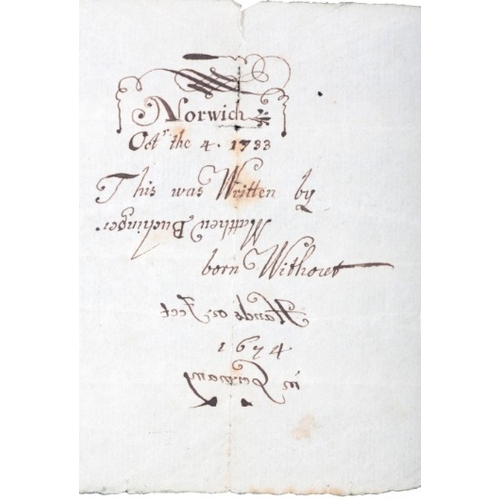 Norwich
Octr the 4. 1733
This was Written by
Matthew Buchinger.
born Without
Hands or Feet
1674
in Germany